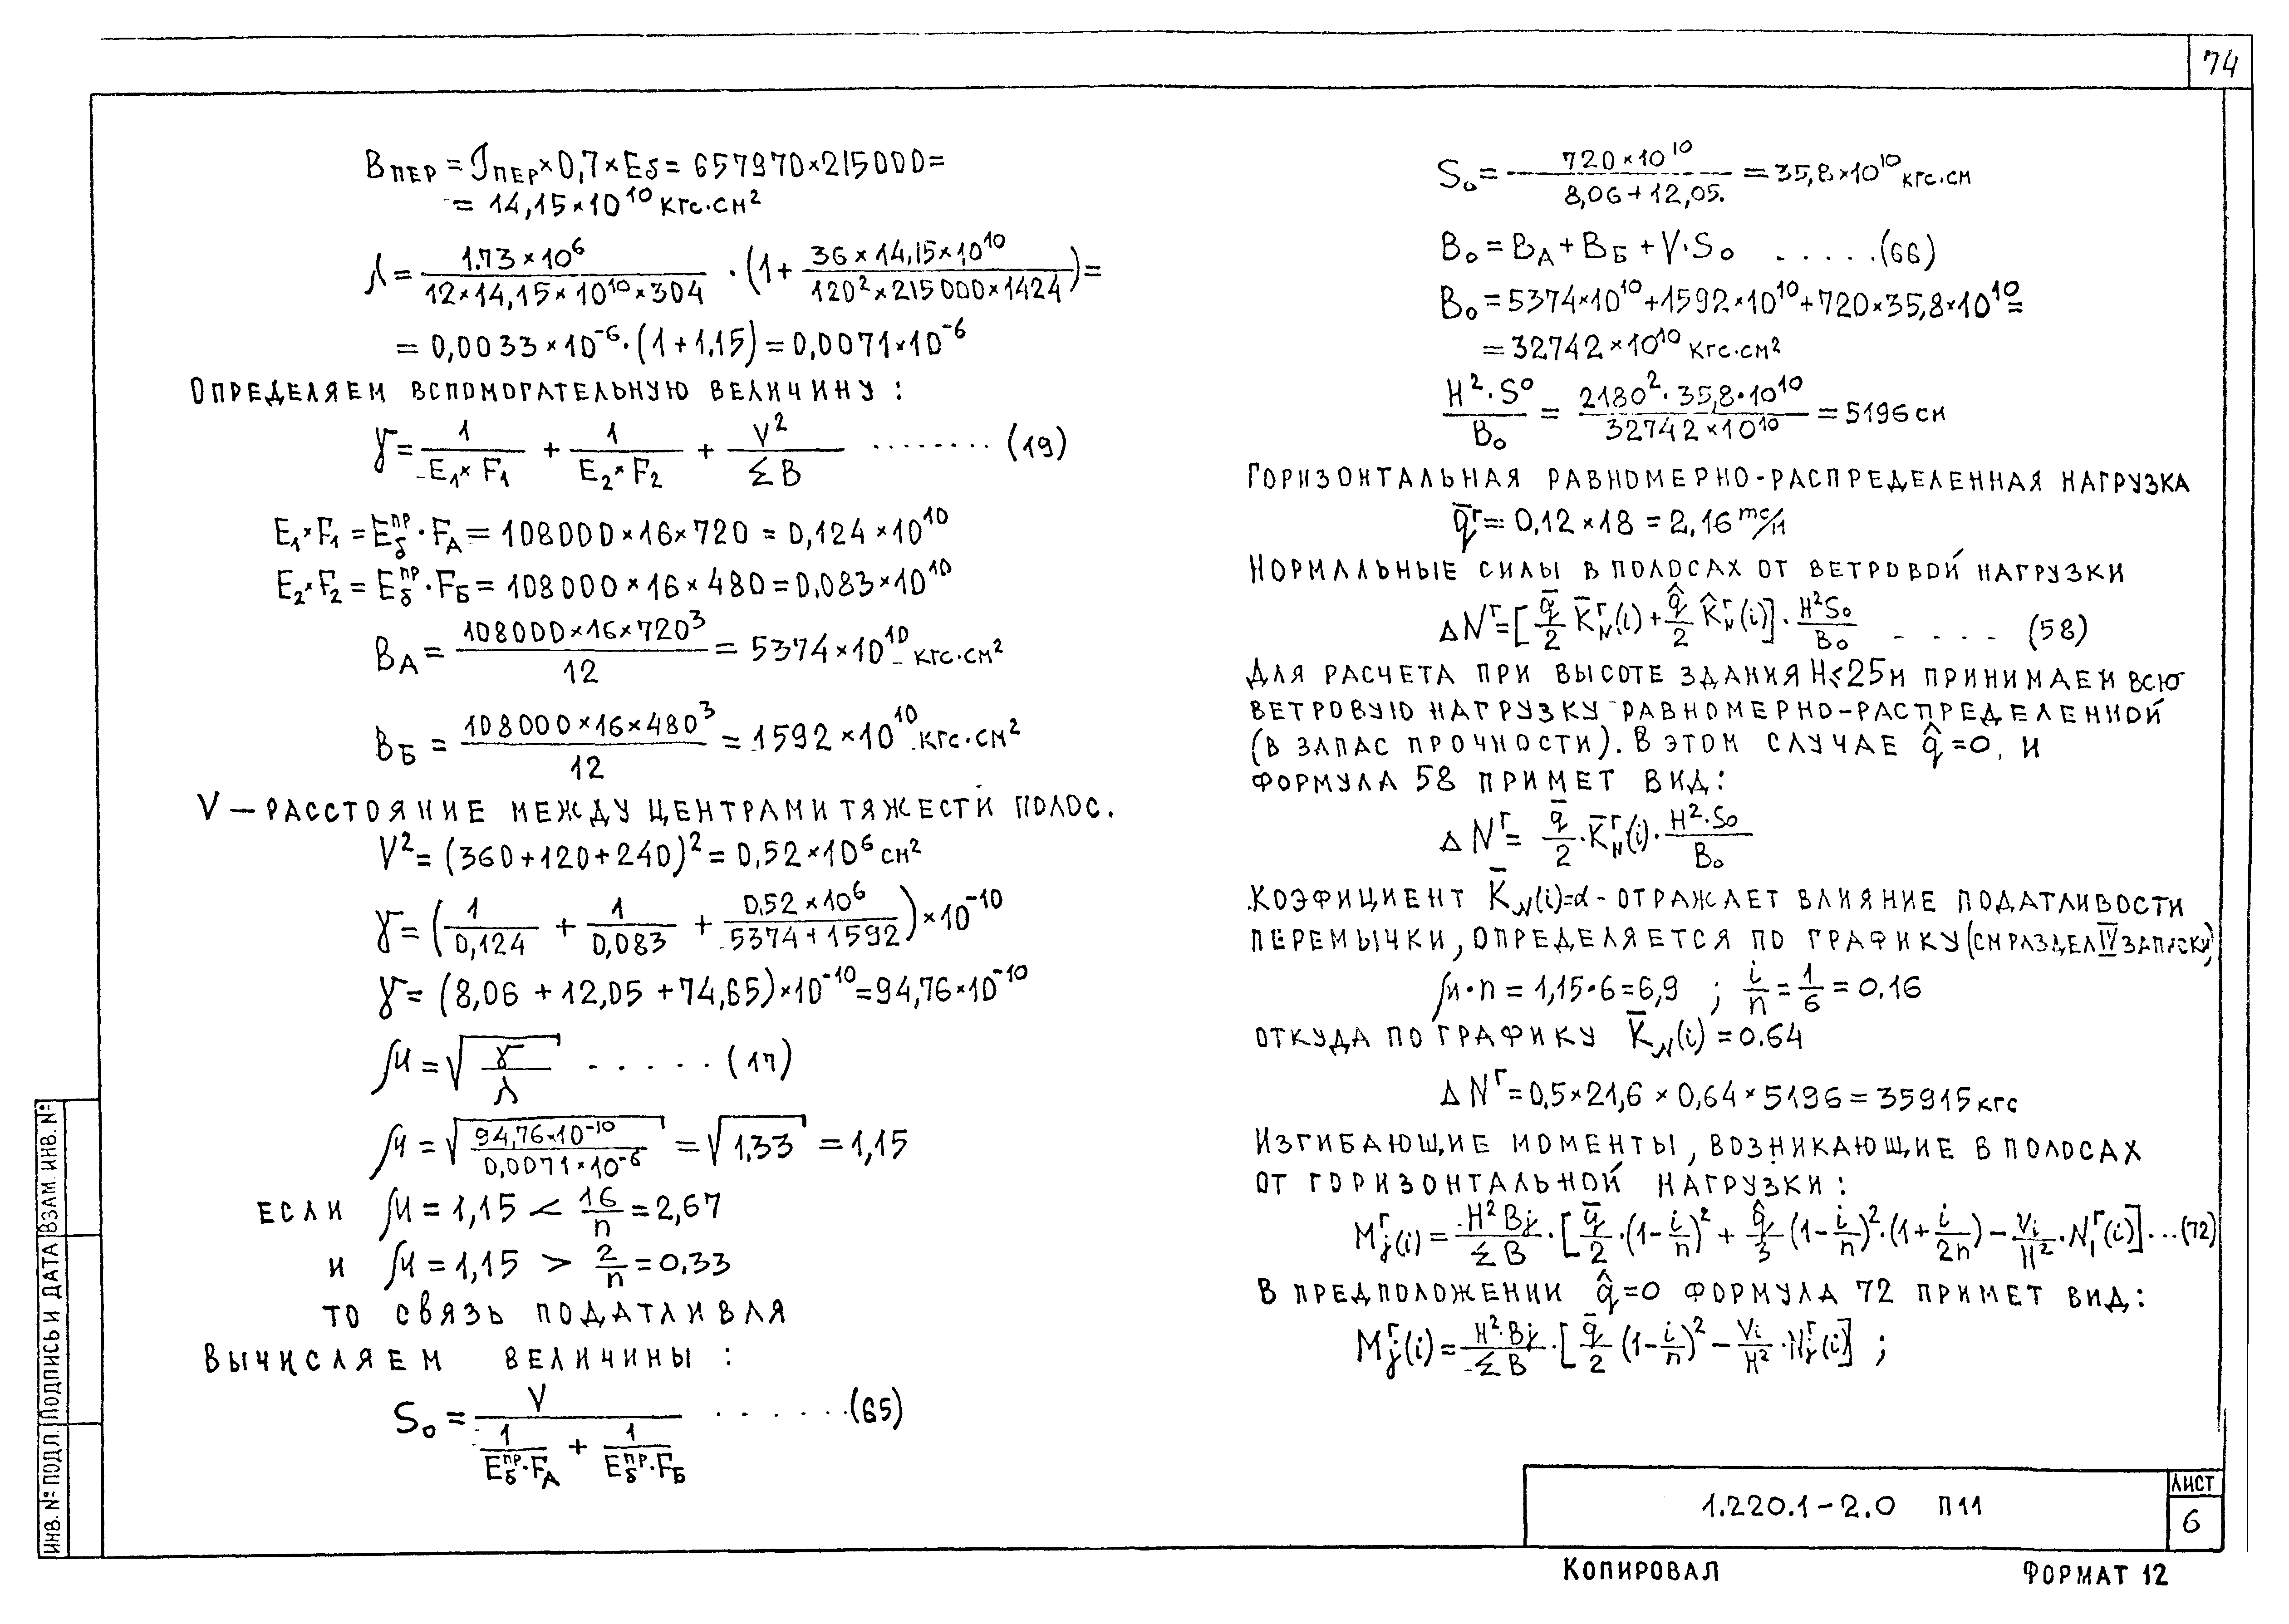 74
Bпер = Jпер×0,7×Eб = 657970×215000=
= 14,15×10¹⁰ кгс·см²
λ = 1.73×10⁶ / 12×14,15×10¹⁰×304 · (1+ 36×14,15×10¹⁰ / 120²×215000×1424) =
= 0,0033×10⁻⁶·(1+1.15) = 0,0071×10⁻⁶
Определяем вспомогательную величину:
γ = 1 / E₁×F₁ + 1 / E₂×F₂ + V² / ΣB ........ (19)
E₁×F₁ = Eбᵖᴾ·FА = 108000×16×720 = 0,124×10¹⁰
E₂×F₂ = Eбᵖᴾ·FБ = 108000×16×480 = 0.083×10¹⁰
BА = 108000×16×720³ / 12 = 5374×10¹⁰ кгс·см²
BБ = 108000×16×480³ / 12 = 1592×10¹⁰ кгс·см²
V — расстояние между центрами тяжести полос.
V² = (360+120+240)² = 0,52×10⁶ см²
γ = (1 / 0,124 + 1 / 0,083 + 0.52×10⁶ / 5374+1592)×10⁻¹⁰
γ = (8,06 + 12,05 + 74,65)×10⁻¹⁰ = 94,76×10⁻¹⁰
μ = √(γ / λ) ...... (17)
μ = √(94,76×10⁻¹⁰ / 0,0071×10⁻⁶) = √1.33 = 1,15
если μ = 1,15 < 16 / n = 2,67
и μ = 1,15 > 2 / n = 0.33
то связь податливая
Вычисляем величины:
S₀ = V / (1 / Eбᵖᴾ·FА + 1 / Eбᵖᴾ·FБ) ...... (65)
S₀ = 720×10¹⁰ / 8,06+12,05. = 35,8×10¹⁰ кгс·см
B₀ = BА + BБ + V·S₀ ......(66)
B₀ = 5374×10¹⁰+1592×10¹⁰+720×35,8×10¹⁰=
= 32742×10¹⁰ кгс·см²
H²·S⁰ / B₀ = 2180²·35,8·10¹⁰ / 32742×10¹⁰ = 5196 см
Горизонтальная равномерно-распределенная нагрузка
q̄ʳ = 0,12×18 = 2,16 тс/м
Нормальные силы в полосах от ветровой нагрузки
ΔNʳ = [q̄ / 2 K̄ʳN(i) + q̂ / 2 K̂ʳN(i)]·H²S₀ / B₀ .... (58)
Для расчета при высоте здания H≤25м принимаем всю
ветровую нагрузку равномерно-распределенной
(в запас прочности). В этом случае q̂=0, и
формула 58 примет вид:
ΔNʳ = q̄ / 2·K̄ʳN(i)·H²·S₀ / B₀
Коэфициент K̄N(i)=α - отражает влияние податливости
перемычки, определяется по графику (см раздел IV записки)
μ·n = 1,15·6=6,9 ; i / n = 1 / 6 = 0.16
откуда по графику K̄N(i) = 0.64
ΔNʳ = 0,5×21,6×0,64×5196 = 35915 кгс
Изгибающие моменты, возникающие в полосах
от горизонтальной нагрузки:
Mʳj(i) = H²Bj / ΣB·[q̄ / 2·(1-i / n)² + q̂ / 3 (1-i / n)²·(1+i / 2n) - Vi / H²·Nʳi(i)]...(72)
В предположении q̂=0 формула 72 примет вид:
Mʳj(i) = H²·Bj / ΣB·[q̄ / 2 (1-i / n)² - Vi / H²·Nʳj(i)] ;
1.220.1-2.0 П11
Лист
6
Копировал
Формат 12
Инв. № подл Подпись и дата Взам. инв. №